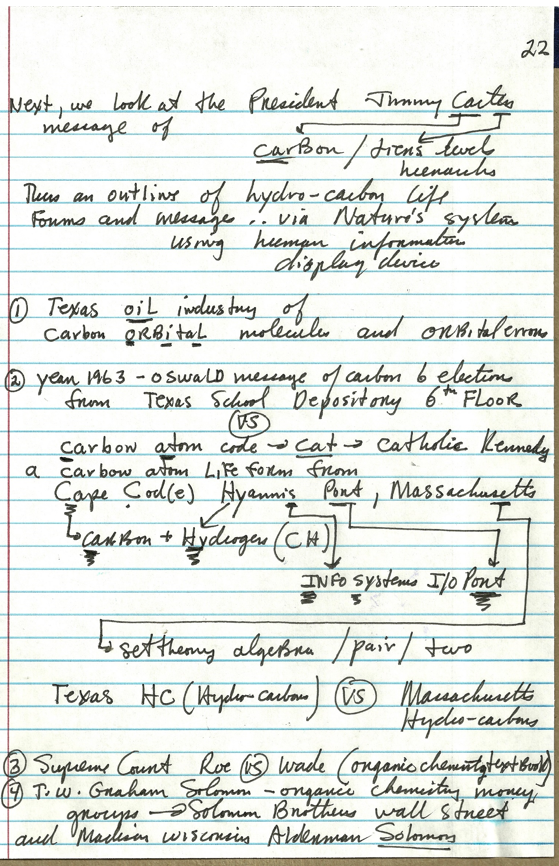 22
Next, we look at the President Jimmy Carter
message of
carBon / tiers level
hierarchs
Thus an outline of hydro-carbon life
Forms and messages ∴ via Nature's system
using human information
display device
① Texas oil industry of
carbon ORBital molecules and ORBital errors
② year 1963 - OSWALD message of carbon 6 elections
from Texas School Depository 6th FLOOR
(VS)
carbon atom code → cat → catholic Kennedy
a carbon atom LIFe form from
Cape Cod(e) Hyannis Port, Massachusetts
carbon + Hydrogen (CH)
INFO systems I/O Port
set theory algebra / pair / two
Texas HC (Hydro-carbons) (VS) Massachusetts
Hydro-carbons
③ Supreme Court Roe (VS) Wade (organic chemistry text Book)
④ T.W. Graham Solomon - organic chemistry money
groups → Solomon Brothers wall street
and Madison wisconsin Alderman Solomon